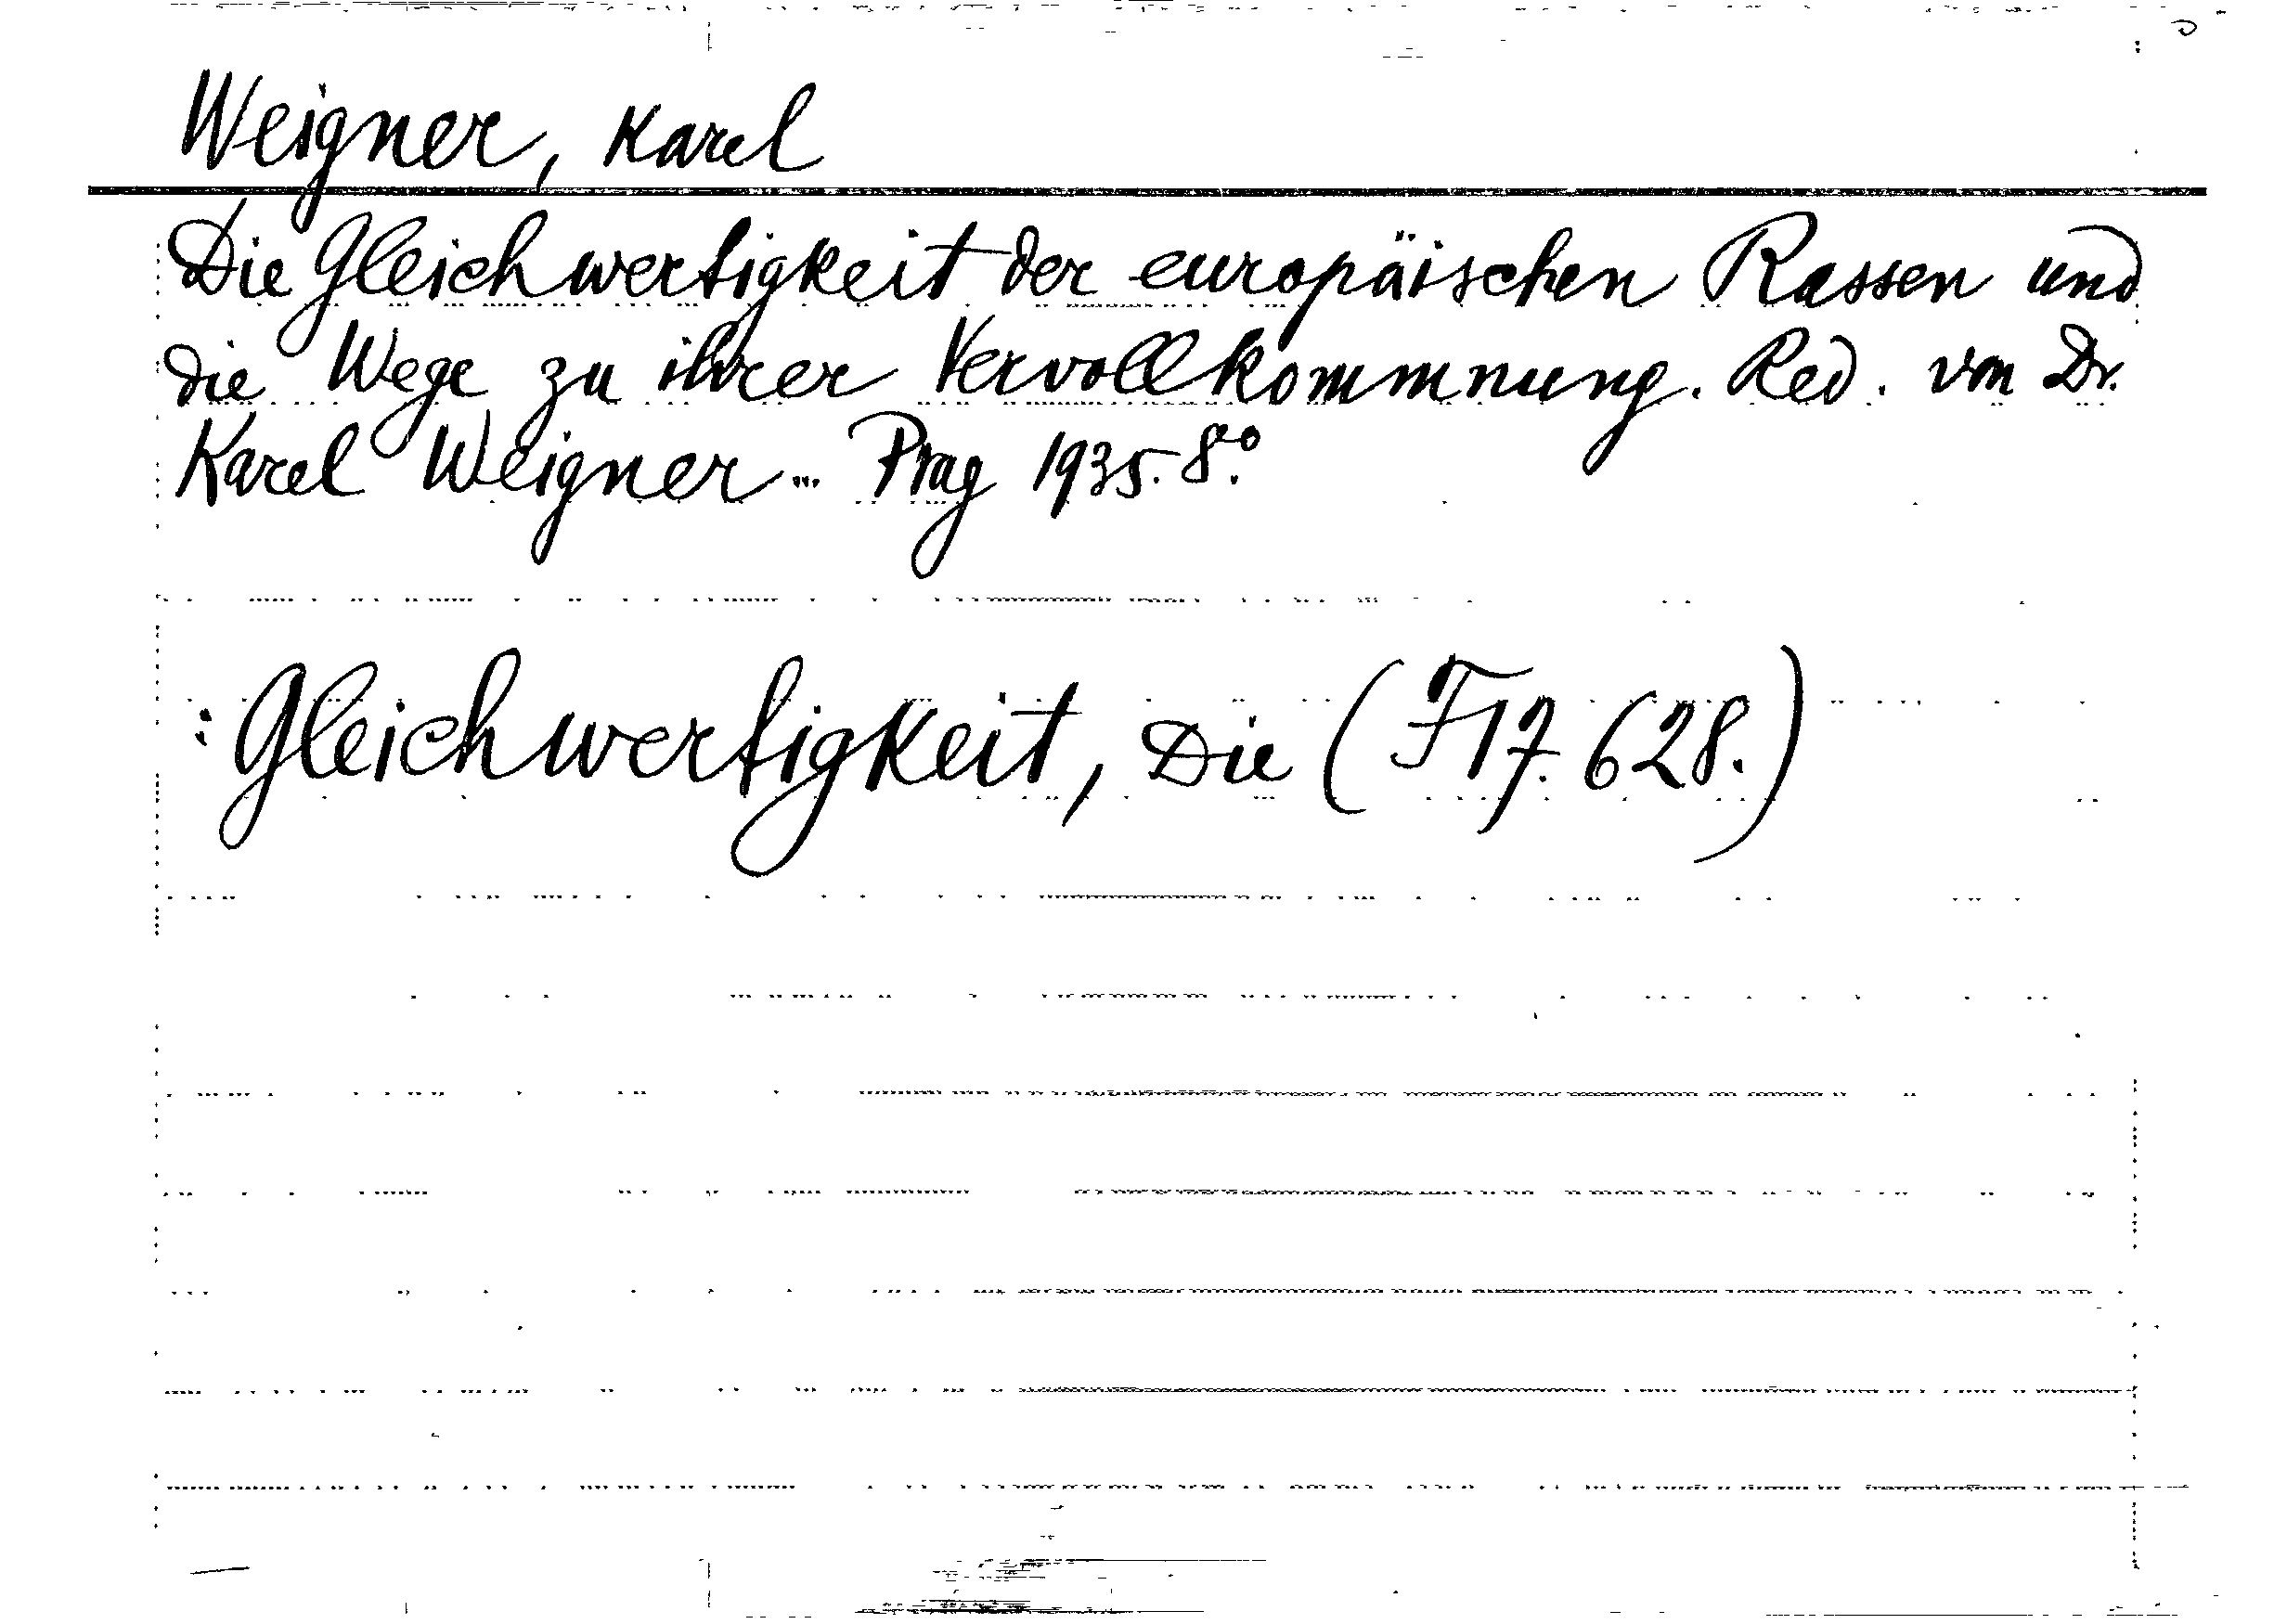 Weigner, Karel
Die Gleichwertigkeit der europäischen Rassen und
die Wege zu ihrer Vervollkommnung. Red. von Dr.
Karel Weigner... Prag 1935. 8.°
: Gleichwertigkeit, Die (F 17. 628.)